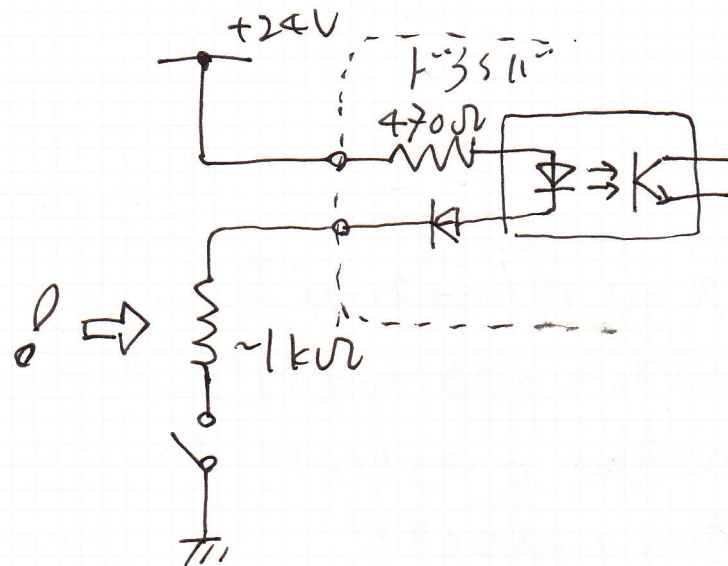 +24V
ドライバ
470Ω
~1kΩ